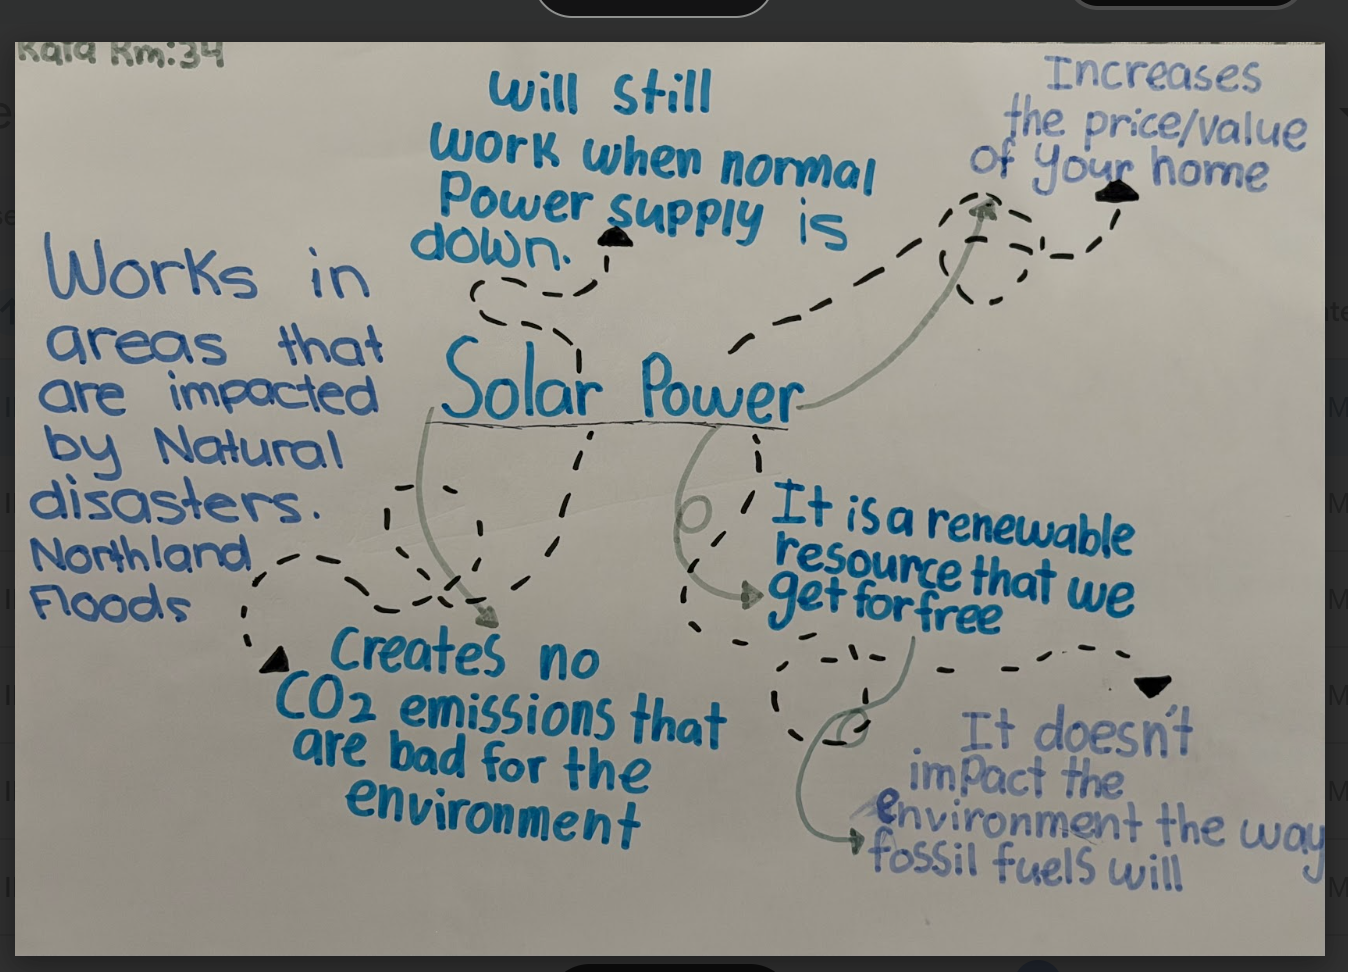 Kaia Rm:34
Will still
work when normal
Power supply is
down.
Increases
the price/value
of your home
Works in
areas that
are impacted
by Natural
disasters.
Northland
Floods
Solar Power
It is a renewable
resource that we
get for free
Creates no
CO2 emissions that
are bad for the
environment
It doesn't
impact the
environment the way
fossil fuels will